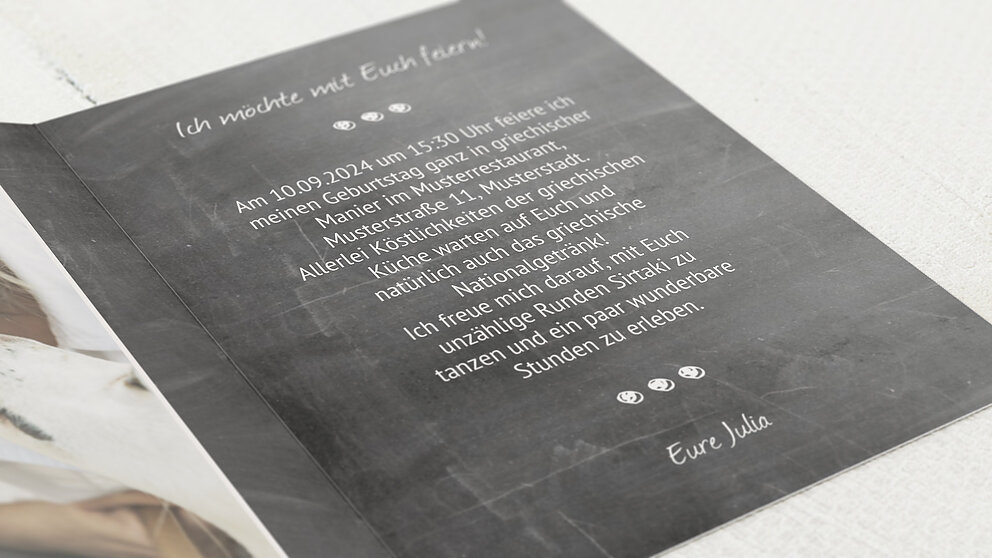 Ich möchte mit Euch feiern!
Am 10.09.2024 um 15:30 Uhr feiere ich
meinen Geburtstag ganz in griechischer
Manier im Musterrestaurant,
Musterstraße 11, Musterstadt.
Allerlei Köstlichkeiten der griechischen
Küche warten auf Euch und
natürlich auch das griechische
Nationalgetränk!
Ich freue mich darauf, mit Euch
unzählige Runden Sirtaki zu
tanzen und ein paar wunderbare
Stunden zu erleben.
Eure Julia